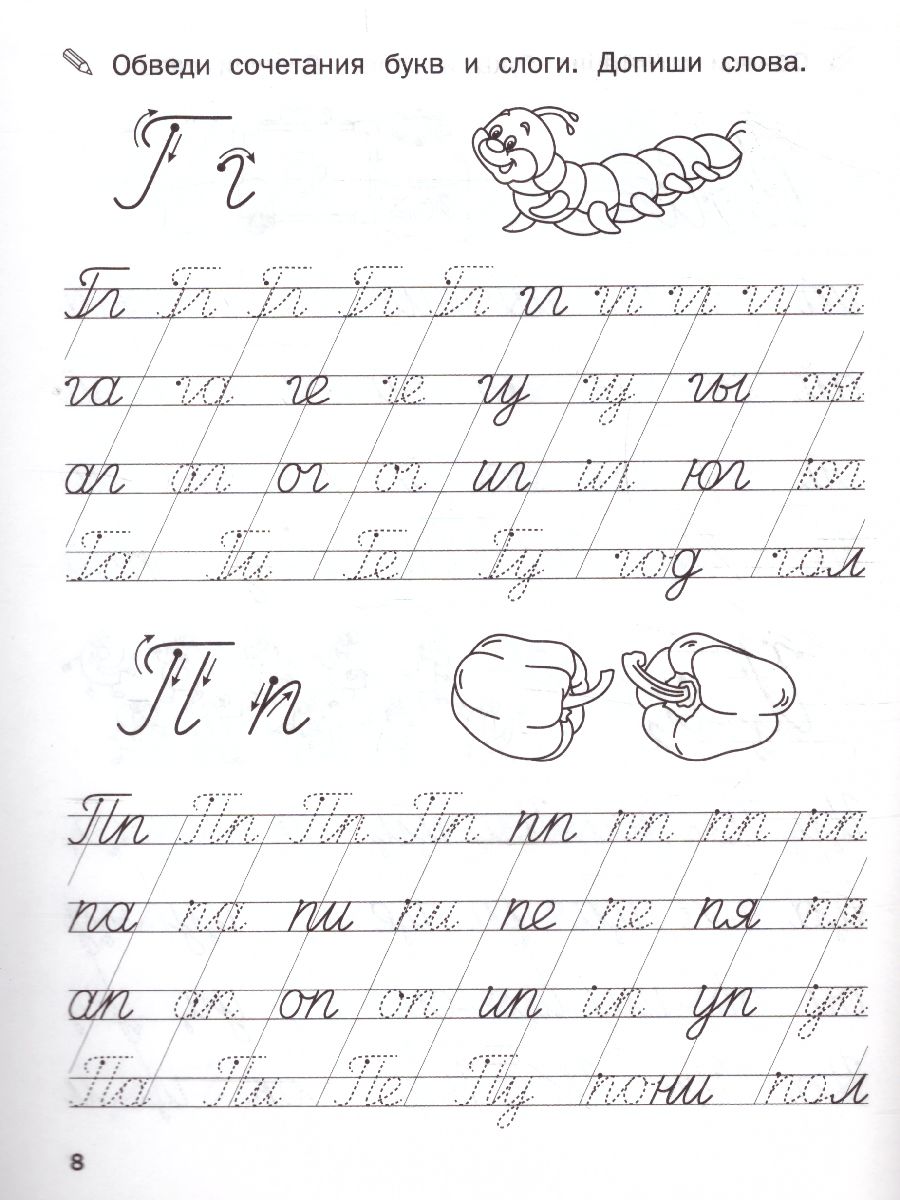 Обведи сочетания букв и слоги. Допиши слова.
Г г
Гг Гг Гг Гг Гг гг гг гг гг гг
га га ге ге гу гу гы гы
аг аг ог ог иг иг юг юг
Га Ги Ге Гу год гол
П п
Пп Пп Пп Пп пп пп пп пп
па па пи пи пе пе пя пя
ап ап оп оп ип ип уп уп
Па Пи Пе Пу пони пол
8